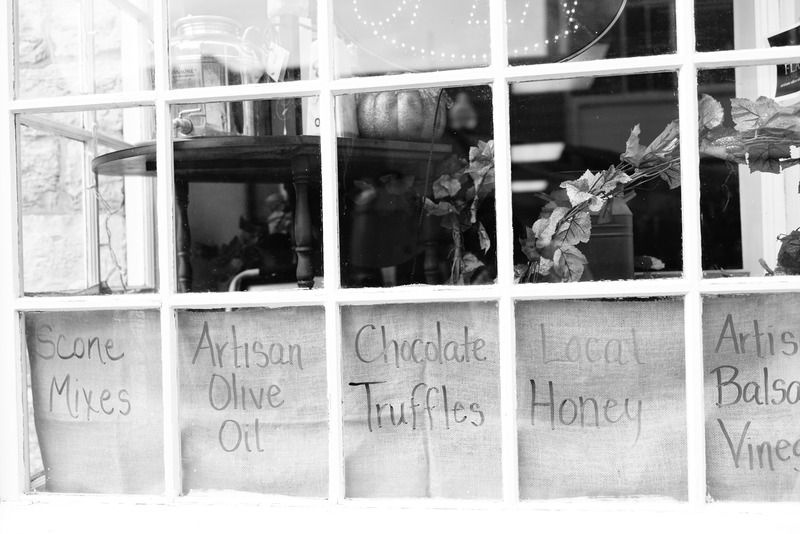 Scone
Mixes
Artisan
Olive
Oil
Chocolate
Truffles
Local
Honey
Artis
Balsa
Vineg